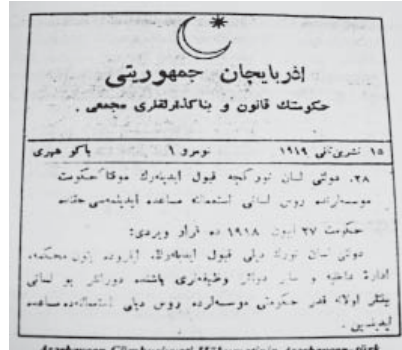 اذربایجان جمهوریتی
حکومتك قانون و بناگذارلقلری مجمعی .
۱۵ نشرین ثانی ۱۹۱۹ نومرو ۱ باکو شهری
۲۸. دولتی لسان تورکجه قبول ایدیله‌رك موقتا حکومت
موسسه‌لرنده روس لسانی استعمالنه مساعده ایدیلمه‌سی حقنده
حکومت ۲۷ ایون ۱۹۱۸ ده قرار ویردی:
دولتی لسان تورك دیلی قبول ایدیله‌رك،
ادارۀ داخلیه و سایر دوائر وظیفه‌لری باشنده دورانلر بو لسانی
بیلنلر اولانه قدر حکومتی موسسه‌لرده روس دیلی استعمالنه‌ده مساعده
ایدیلسین .